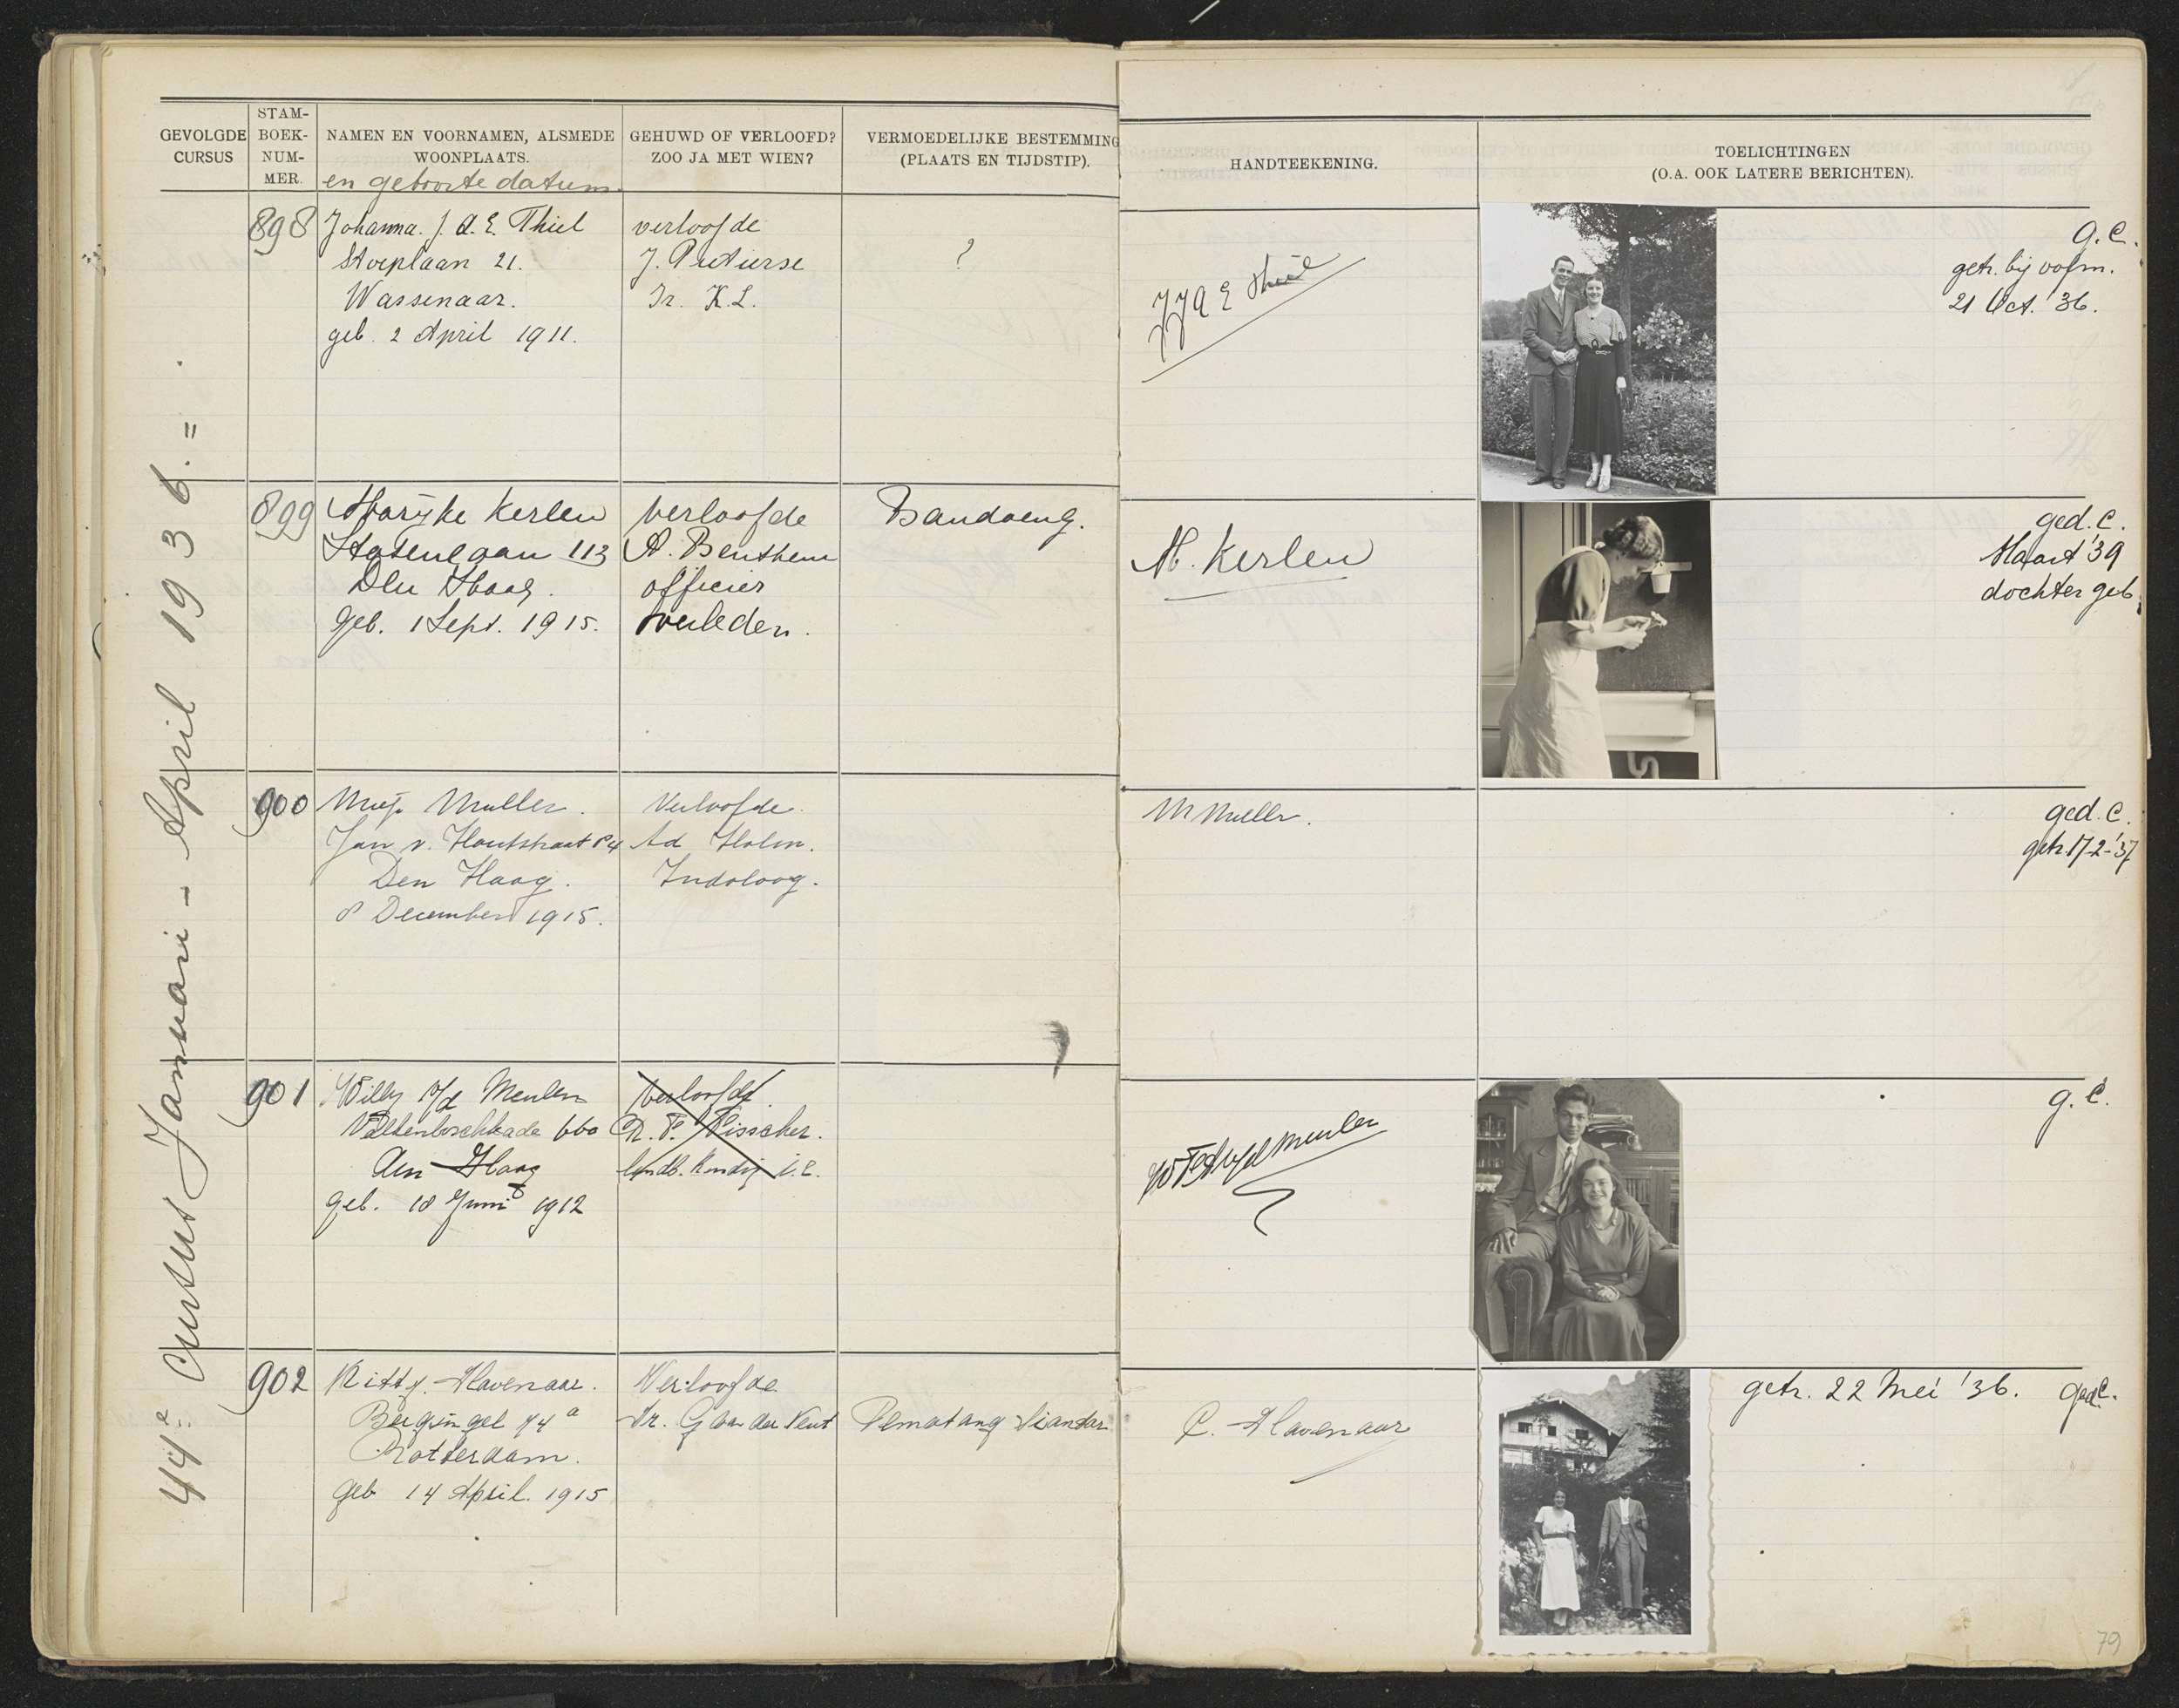 GEVOLGDE CURSUS
STAM-BOEK-NUM-MER.
NAMEN EN VOORNAMEN, ALSMEDE WOONPLAATS.
en geboorte datum.
GEHUWD OF VERLOOFD? ZOO JA MET WIEN?
VERMOEDELIJKE BESTEMMING (PLAATS EN TIJDSTIP).
HANDTEEKENING.
TOELICHTINGEN
(O.A. OOK LATERE BERICHTEN).
44e Cursus Januari - April 1936. =
898
Johanna. J. A. E. Thiel
21.
Wassenaar.
geb. 2 April 1911.
verloofde
J.
Ir. K.L.
?
J J A E Thiel
g. C.
getr. bij volm.
21 Oct. '36.
899
Marijke Kerlen
Statenlaan 113
Den Haag.
geb. 1 Sept. 1915.
verloofde
A. Benthem
officier
overleden.
Bandoeng.
M. Kerlen
ged. C.
Maart '39
dochter geb.
900
Miep Muller.
Jan v. Houtstraat 84
Den Haag.
8 December 1915.
Verloofde
Ad Holm.
Indoloog.
M Muller.
ged. C.
getr. 17-2-'37
901
Willy v/d Meulen
Valkenboschkade 660
Den Haag
geb. 18 Juni 1912
Verloofd.
Visscher.
landb. kundig i.
v/d Meulen
g. C.
902
Kitty. Havenaar.
Bergsingel 74a
Rotterdam.
geb 14 April. 1915
Verloofde
G van der Vent
Pematang Siantar
C. Havenaar
getr. 22 Mei '36.
ged C.
79